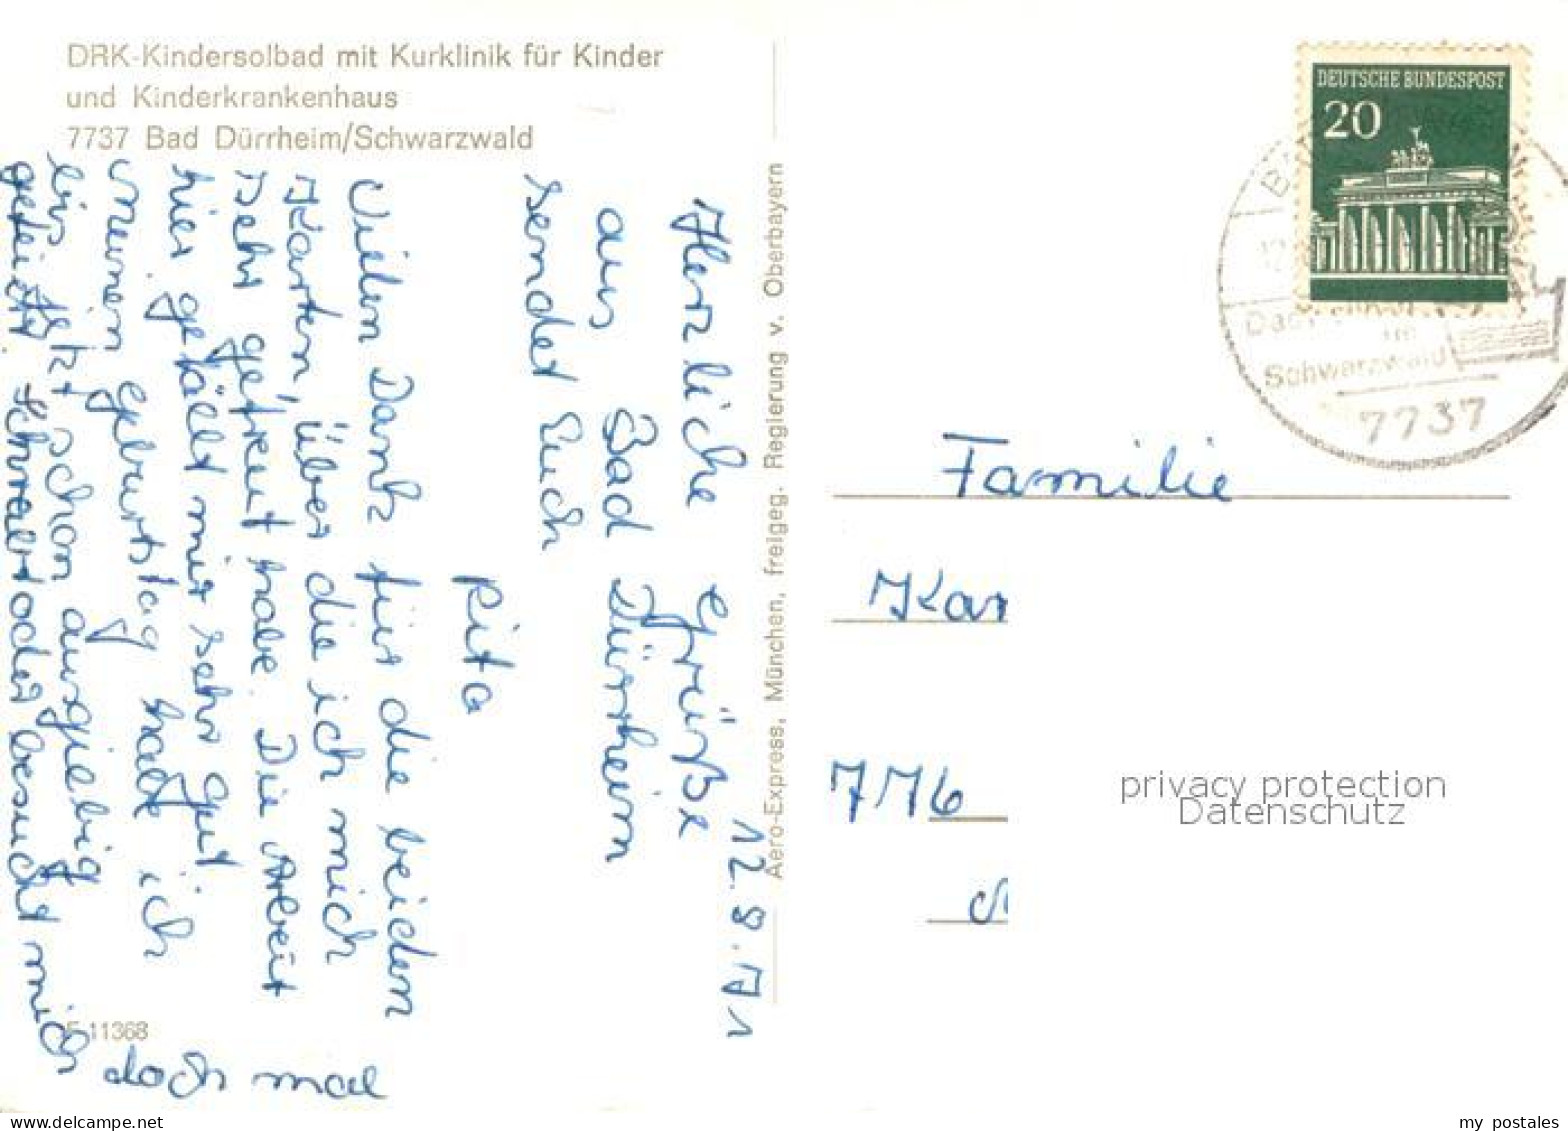 DRK-Kindersolbad mit Kurklinik für Kinder
und Kinderkrankenhaus
7737 Bad Dürrheim/Schwarzwald
12.8.71
Herzliche Grüße
aus Bad Dürrheim
sendet Euch
Rita
Vielen Dank für die beiden
Karten, über die ich mich
sehr gefreut habe. Die Arbeit
hier gefällt mir sehr gut
meinen Geburtstag habe ich
bis jetzt schon ausgiebig
gefeiert. Schreibt oder besucht mich
doch mal
E 11368
Aero-Express, München, freigeg. Regierung v. Oberbayern
DEUTSCHE BUNDESPOST
20
Schwarzwald
7737
Familie
Kar
7716
privacy protection
Datenschutz
my postales